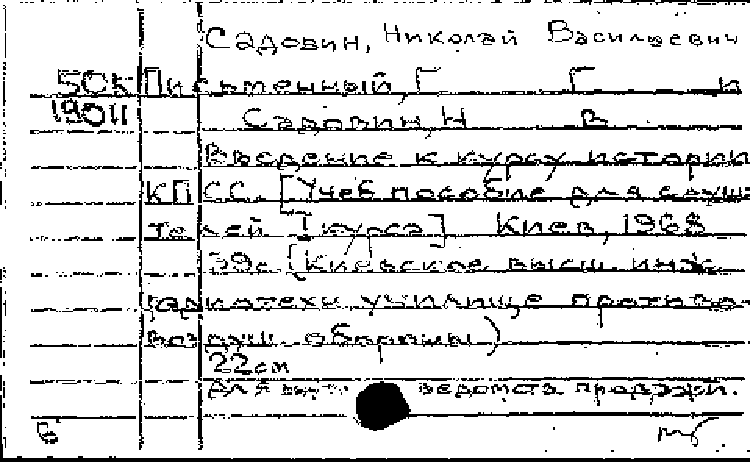 Садовин, Николай Васильевич
50К Письменный, Г Г и
19011 Садовин, Н В
Введение к курсу истории
КПСС. [Учеб пособие для слуша
телей I курса] Киев, 1968
39с (Киевское высш. инж.
радиотехн. училище противо-
воздуш. обороны)
22см
Для ведомств. продажи.
Б